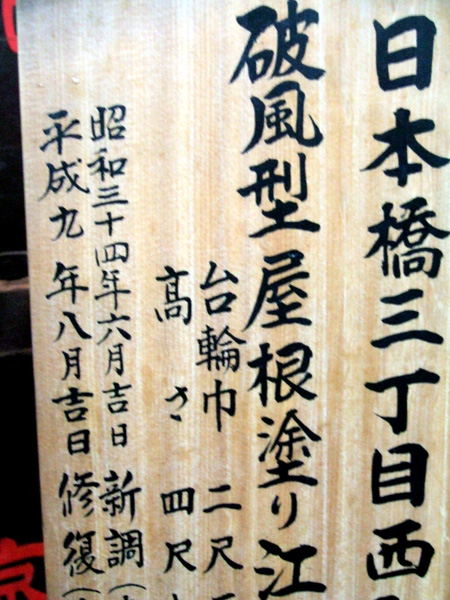 日本橋三丁目西
破風型屋根塗り江
台輪巾 二尺
高さ 四尺
昭和三十四年六月吉日 新調(
平成九年八月吉日 修復(